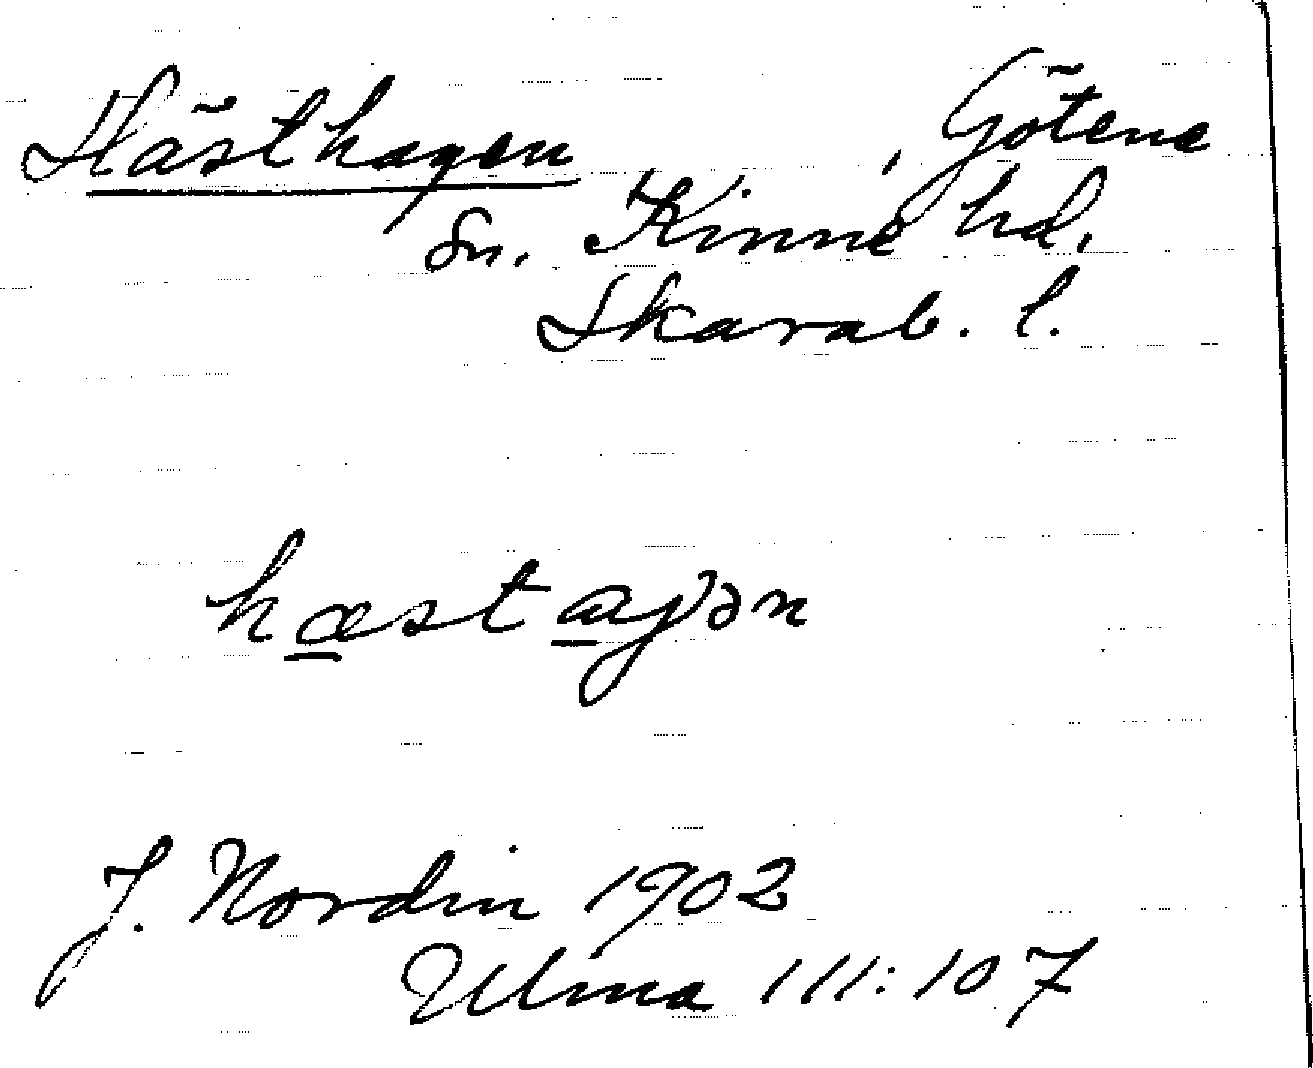 Hästhagen, Götene
sn. Kinne hd.
Skarab. l.
hæstajən
J. Nordin 1902
Ulma 111:107